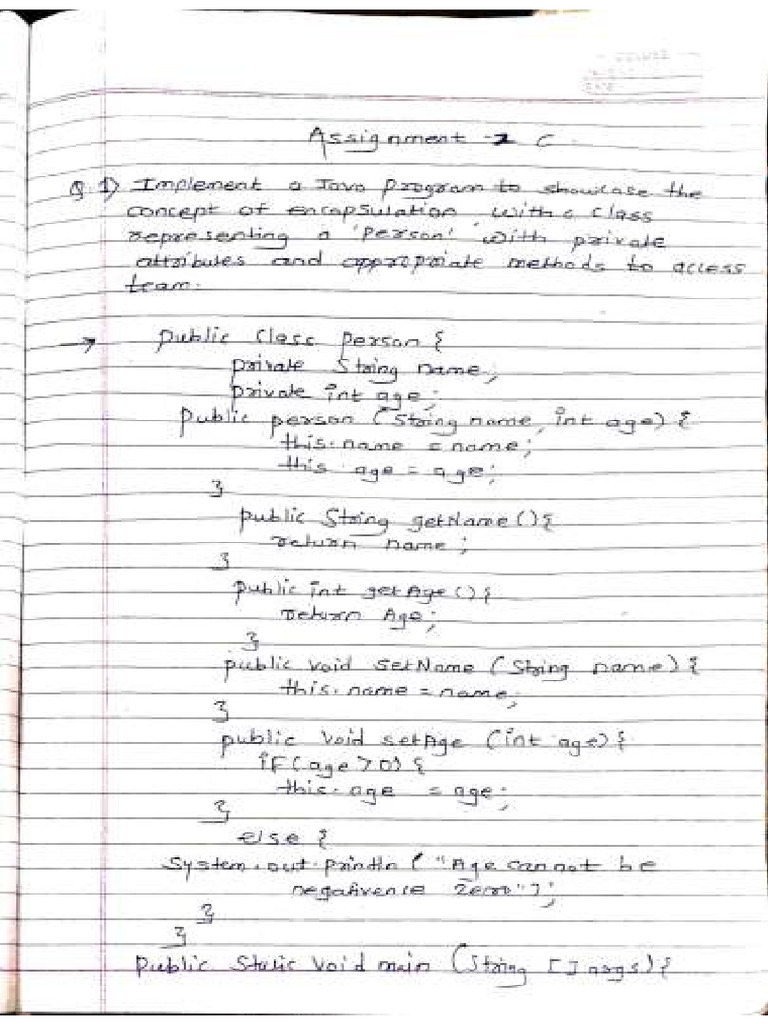 Assignment - 2 C
Q.1) Implement a Java program to showcase the
concept of encapsulation with c class
representing a 'person' with private
attributes and appropriate methods to access
team.
→ public class person {
private String name;
private int age;
public person (String name, int age) {
this.name = name;
this.age = age;
}
public String getName() {
return name;
}
public int getAge() {
return Age;
}
public void setName (String name) {
this.name = name;
}
public void setAge (int age) {
if (age > 0) {
this.age = age;
}
else {
System.out.println ( "Age cannot be
zero");
}
}
public static void main (String [] args) {